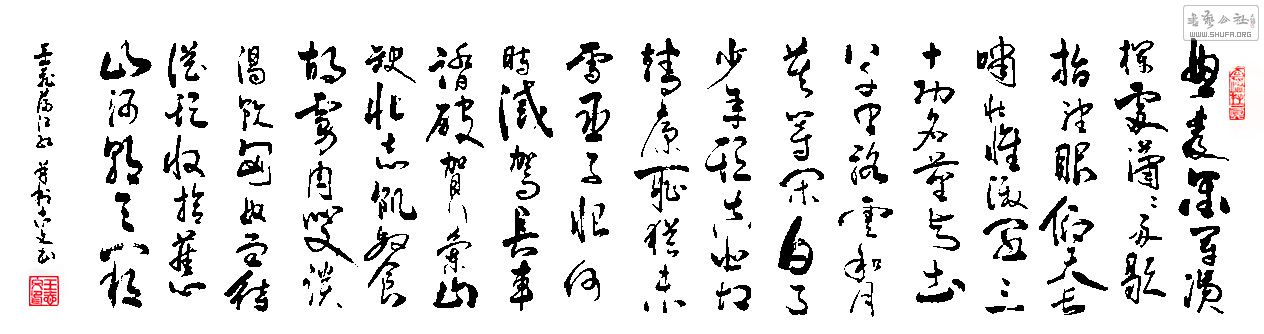 書藝公社
WWW.SHUFA.ORG
怒髮衝冠憑
欄處瀟瀟雨歇
抬望眼仰天長
嘯壯懷激烈三
十功名塵與土
八千里路雲和月
莫等閑白了
少年頭空悲切
靖康恥猶未
雪臣子恨何
時滅駕長車
踏破賀蘭山
缺壯志飢餐
胡虜肉笑談
渴飲匈奴血待
從頭收拾舊
山河朝天闕
岳飛滿江紅